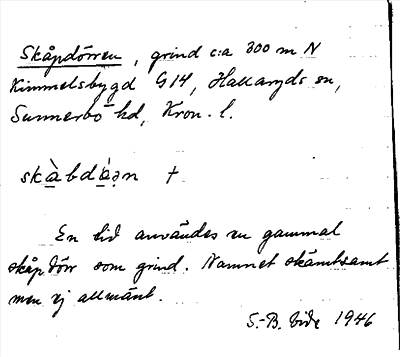 Skåpdörren, grind c:a 300 m N
Kimmelsbygd G14, Hallaryds sn,
Sunnerbo hd, Kron. l.
skàbdǻ̱ən †
En tid användes en gammal
skåpdörr som grind. Namnet skämtsamt
men ej allmänt.
S.-B. Vide 1946